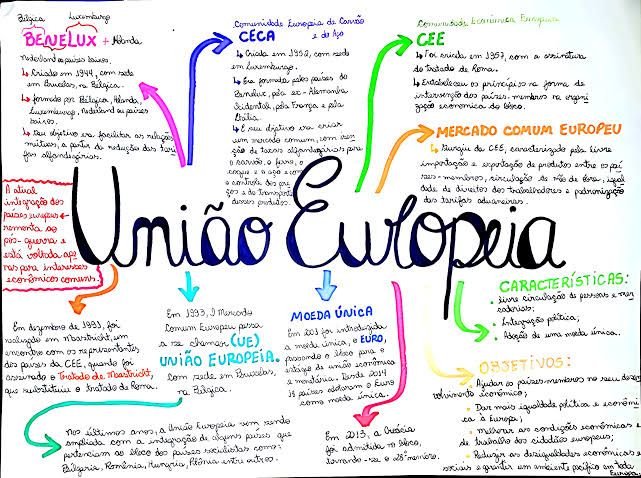 Bélgica Luxemburgo
BENELUX + Holanda
Nederland ou países baixos.
↳ Criado em 1944, com sede
em Bruxelas, na Bélgica.
↳ formado por Bélgica, Holanda,
Luxemburgo, Nederland ou países
baixos.
↳ Seu objetivo era facilitar as relações
mútuas, a partir da redução das tari
fas alfandegárias.
Comunidade Europeia de Carvão
e do Aço
CECA
↳ Criada em 1952, com sede
em Luxemburgo.
↳ Era formada pelos países do
Benelux, pela ex-Alemanha
Ocidental, pela França e pela
Itália.
↳ Seu objetivo era criar
um mercado comum, com isen
ção de taxas alfandegárias para
o carvão, o ferro, o
coque e o aço e com
o controle dos pre
ços e do transporte
desses produtos.
Comunidade Econômica Europeia
CEE
↳ Foi criada em 1957, com a assinatura
do tratado de Roma.
↳ Estabeleceu os princípios na forma de
intervenção dos países-membros na organi
zação econômica do bloco.
MERCADO COMUM EUROPEU
↳ Surgiu da CEE, caracterizado pela livre
importação e exportação de produtos entre os paí
ses-membros, circulação de mão de obra, igual
dade de direitos dos trabalhadores e padronização
das tarifas aduaneiras.
A atual
integração dos
países europeus
remonta ao
pós-guerra e
está voltada ape
nas para interesses
econômicos comuns.
União Europeia
Em dezembro de 1991, foi
realizado em Mastricht, um
encontro com os representantes
dos países da CEE, quando foi
assinado o Tratado de Mastricht,
que substituiu o tratado de Roma.
Em 1993, o Mercado
Comum Europeu passa
a se chamar (UE)
UNIÃO EUROPEIA.
com sede em Bruxelas,
na Bélgica.
MOEDA ÚNICA
Em foi introduzida
a moeda única, o EURO,
passando o bloco para o
estágio de união econômica
e monetária. Desde 2014
18 países adotaram o Euro
como moeda única.
CARACTERÍSTICAS:
• Livre circulação de pessoas e mer
cadorias;
• Integração política;
• Adoção de uma moeda única.
OBJETIVOS:
• Ajudar os países-membros no seu desen
volvimento econômico;
• Dar mais igualdade política e econômi
ca à Europa;
• melhorar as condições econômicas e
de trabalho dos cidadões europeus;
• Reduzir as desigualdades econômicas e
sociais e garantir um ambiente pacífico em toda
Europa.
Nos últimos anos, a União Europeia vem sendo
ampliada com a integração de alguns países que
pertenciam ao bloco dos países socialistas como:
Bulgária, Romênia, Hungria, Polônia entre outros.
Em 2013, a Croácia
foi admitida no bloco,
tornando-se o 28º membro.